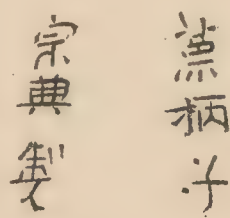 藻柄子
宗典製